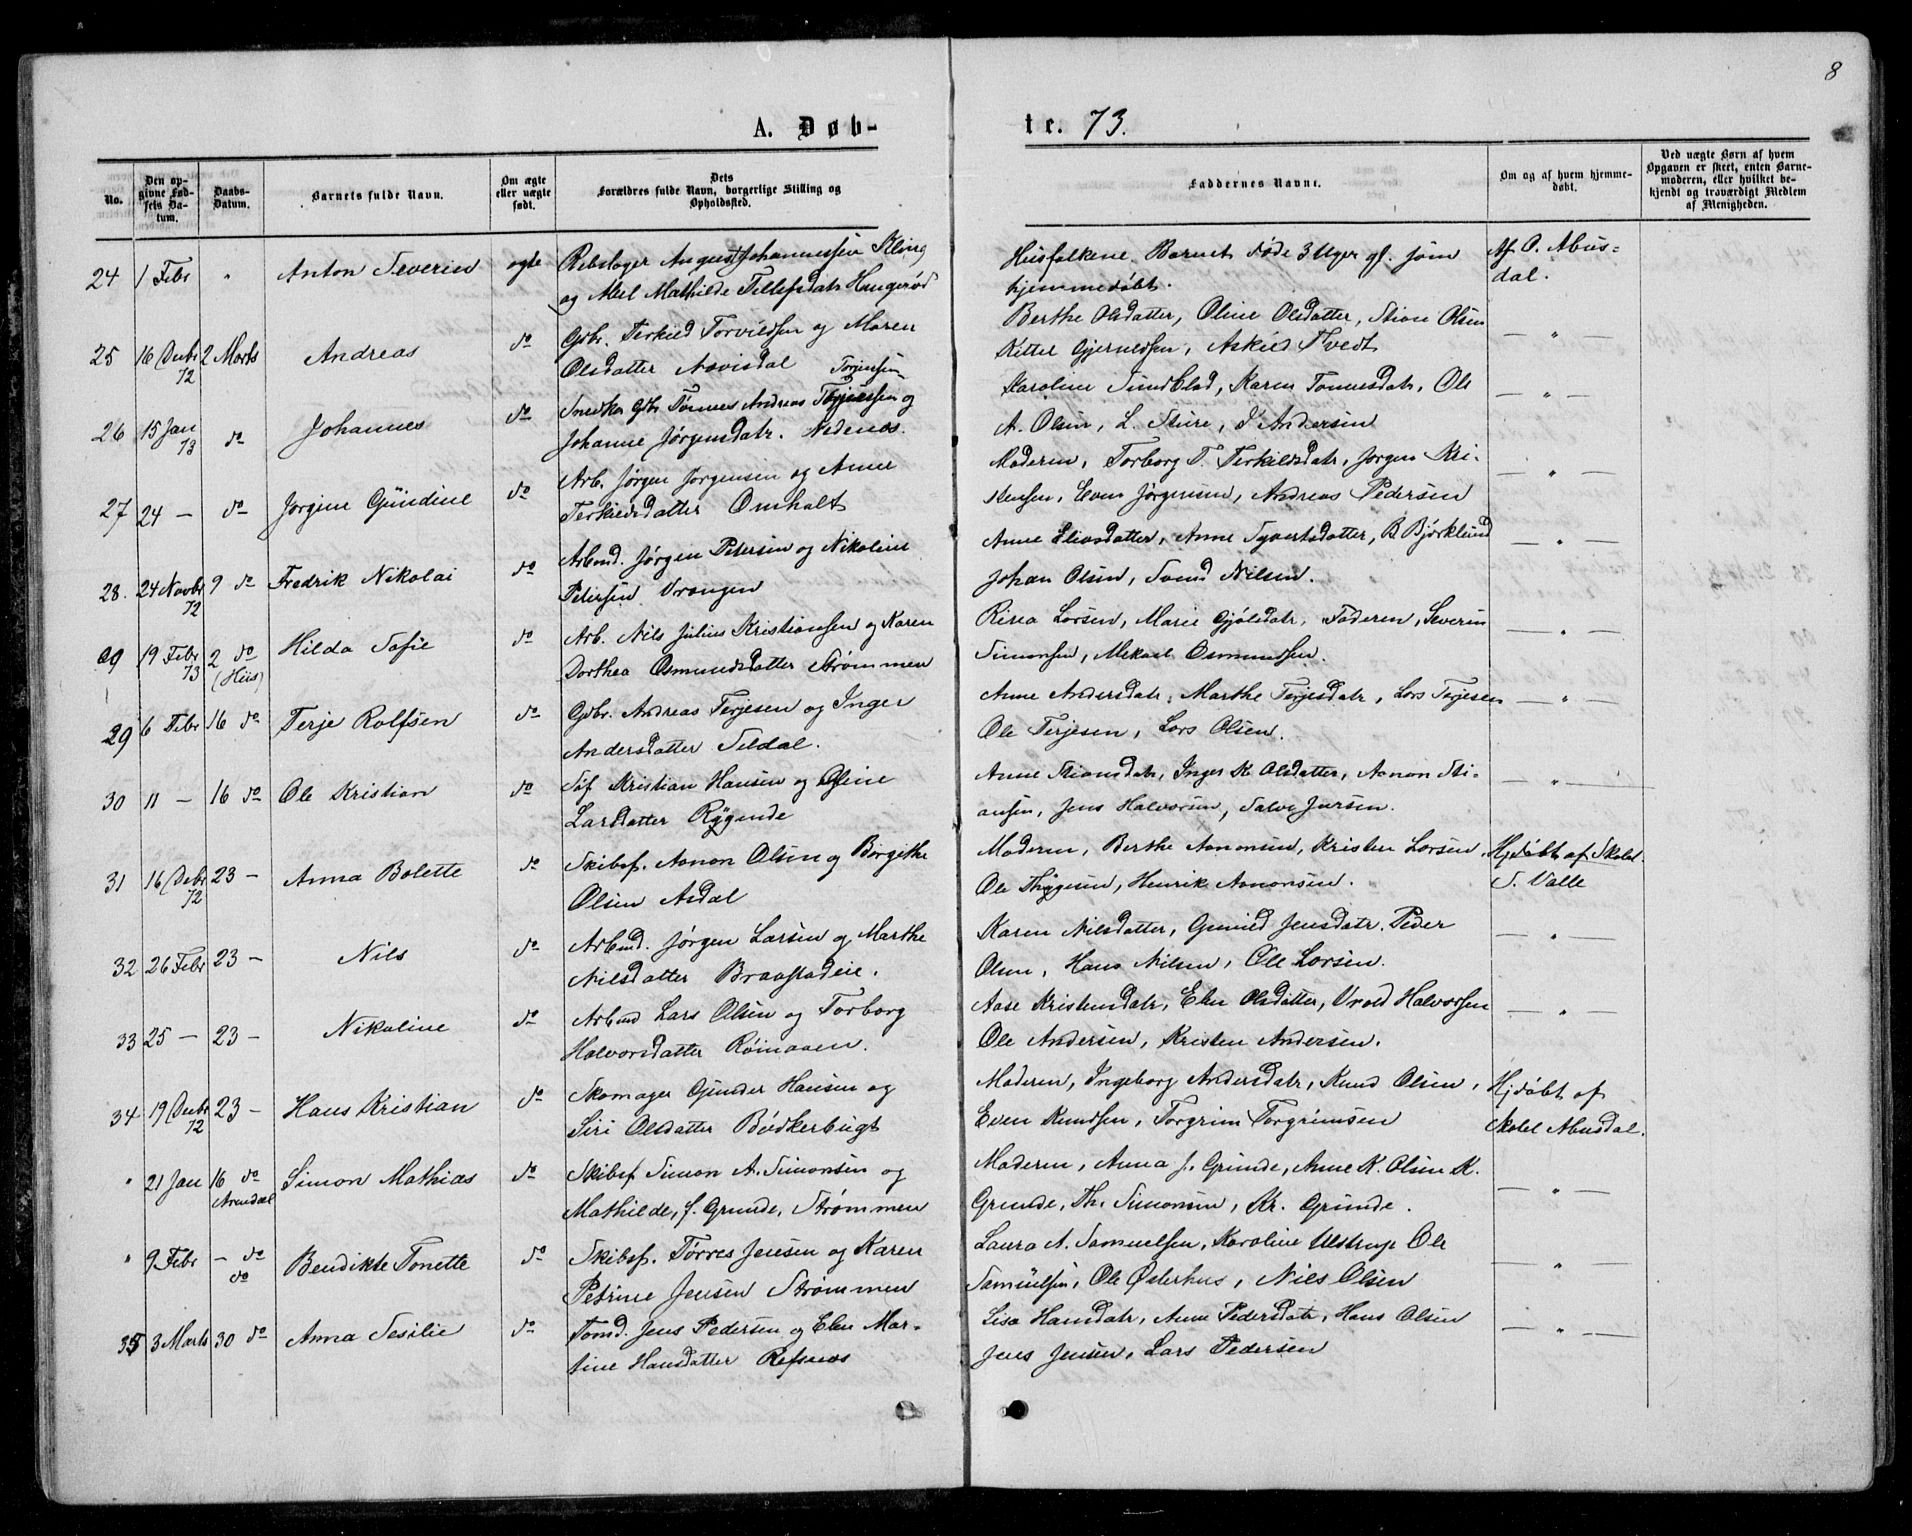 8
A. Døb-
te. 73.
No.
Den op-
givne Fød-
sels Da-
tum.
Daabs-
Datum.
Barnets fulde Navn.
Om ægte
eller uægte
født.
Dets
Forældres fulde Navn, borgerlige Stilling og
Opholdssted.
Faddernes Navne.
Om og af hvem hjemme-
døbt.
Ved uægte Børn af hvem
Opgaven er skeet, enten Barne-
moderen, eller hvilket be-
kjendt og troværdigt Medlem
af Menigheden.
24 1 Febr " Anton Severin ægte Rebslager August Johannessen Kling
og Abel Mathilde Tellefsdatr Haugerød
Husfolkene, Barnet døde 3 Uger gl. som
hjemmedøbt.
Af O. Abus-
dal.
25 16 Decbr 72 2 Marts Andreas do Gbr. Terkield Torvildsen og Maren
Olsdatter Nævisdal
Berthe Olsdatter, Oline Olsdatter, Stian Olsen
Kittel Gjeruldsen, Askild Tvedt
— " —
26 15 Jan 73 do Johannes do Snedker Gbr Tønnes Andreas Terjesen og
Johanne Jørgensdatr. Nedenes.
Karoline Sundblad, Karen Tomesdatr, Ole
A. Olsen, L. Sture, J. Andersen
— " —
27 24 — do Jørgine Gundine do Arb. Jørgen Jørgensen og Anne
Terkieldsdatter Omholt
Moderen, Torborg T. Terkildsdatr, Jørgen Kri-
stensen, Even Jørgensen, Andreas Pedersen
— " —
28. 24 Novbr 72 9 do Fredrik Nikolai do Arbmd. Jørgen Petersen og Nikoline
Petersen Vrangen
Anne Eliasdatter, Anne Syvertsdatter, B Bjørklund
Johan Olsen, Svend Nilsen.
— " —
29 19 Febr 73 2 do (Hiis) Hilda Sofie do Arb. Nils Julius Kristiansen og Karen
Dorthea Osmundsdatter Strømmen
Risea Larsen, Marie Gjølsdatr, Faderen, Severin
Simonsen, Mekael Osmundsen.
— " —
29 6 Febr 16 do Terje Rolfsen do Gbr. Andreas Terjesen og Inger
Andersdatter Seldal.
Anne Andersdatr, Marthe Terjesdatr, Lars Terjesen
Ole Terjesen, Lars Olsen.
— " —
30 11 — 16 do Ole Kristian do Søf Kristian Hansen og Oline
Larsdatter Rygende
Anne Stiansdatr, Inger K. Olsdatter, Aanon Sti-
ansen, Jens Halvorsen, Salve Jursen.
— " —
31 16 Decbr 72 23 — Anna Bolette do Skibsf. Aanon Olsen og Birgithe
Olsen Asdal
Moderen, Berthe Aanonsen, Kristen Larsen,
Ole Thygesen, Henrik Aanonsen.
Hjdøbt af Skolel.
S. Valle
32 26 Febr 23 — Nils do Arbmd. Jørgen Larsen og Marthe
Nilsdatter Braastadeie.
Karen Nilsdatter, Gunild Jensdatr. Peder
Olsen, Hans Nilsen, Ole Larsen.
— " —
33 25 — 23 — Nikoline do Arbmd Lars Olsen og Torborg
Halvorsdatter Rømaaen.
Aase Kristendatr, Elen Olsdatter, Vrold Halvorsen
Ole Andersen, Kristen Andersen.
— " —
34 19 Decbr 72 23 — Hans Kristian do Skomager Gunder Hansen og
Siri Olsdatter Bødkerbugt
Moderen, Ingeborg Andersdatr, Knud Olsen,
Even Knudsen, Torgrim Torgrimsen
Hjdøbt af
Skolel Abusdal.
" 21 Jan 16 do Arendal Simon Mathias do Skibsf Simon A. Simonsen og
Mathilde, f. Grunde, Strømmen
Moderen, Anna J. Grunde, Anne K. Olsen K.
Grunde, Th. Simonsen, Kr. Grunde.
— " —
" 9 Febr — do do Bendikte Tonette do Skibsf. Tørres Jensen og Karen
Petrine Jensen Strømmen
Laura A. Samuelsen, Karoline Ulstrup Ole
Samuelsen, Ole Østerhus, Nils Olsen
— " —
35 3 Marts 30 do Anna Sesilie do Tømd. Jens Pedersen og Elen Mar-
tine Hansdatter Refsnæs
Lisa Hansdatr, Anne Pedersdatr, Hans Olsen
Jens Jensen, Lars Pedersen
— " —